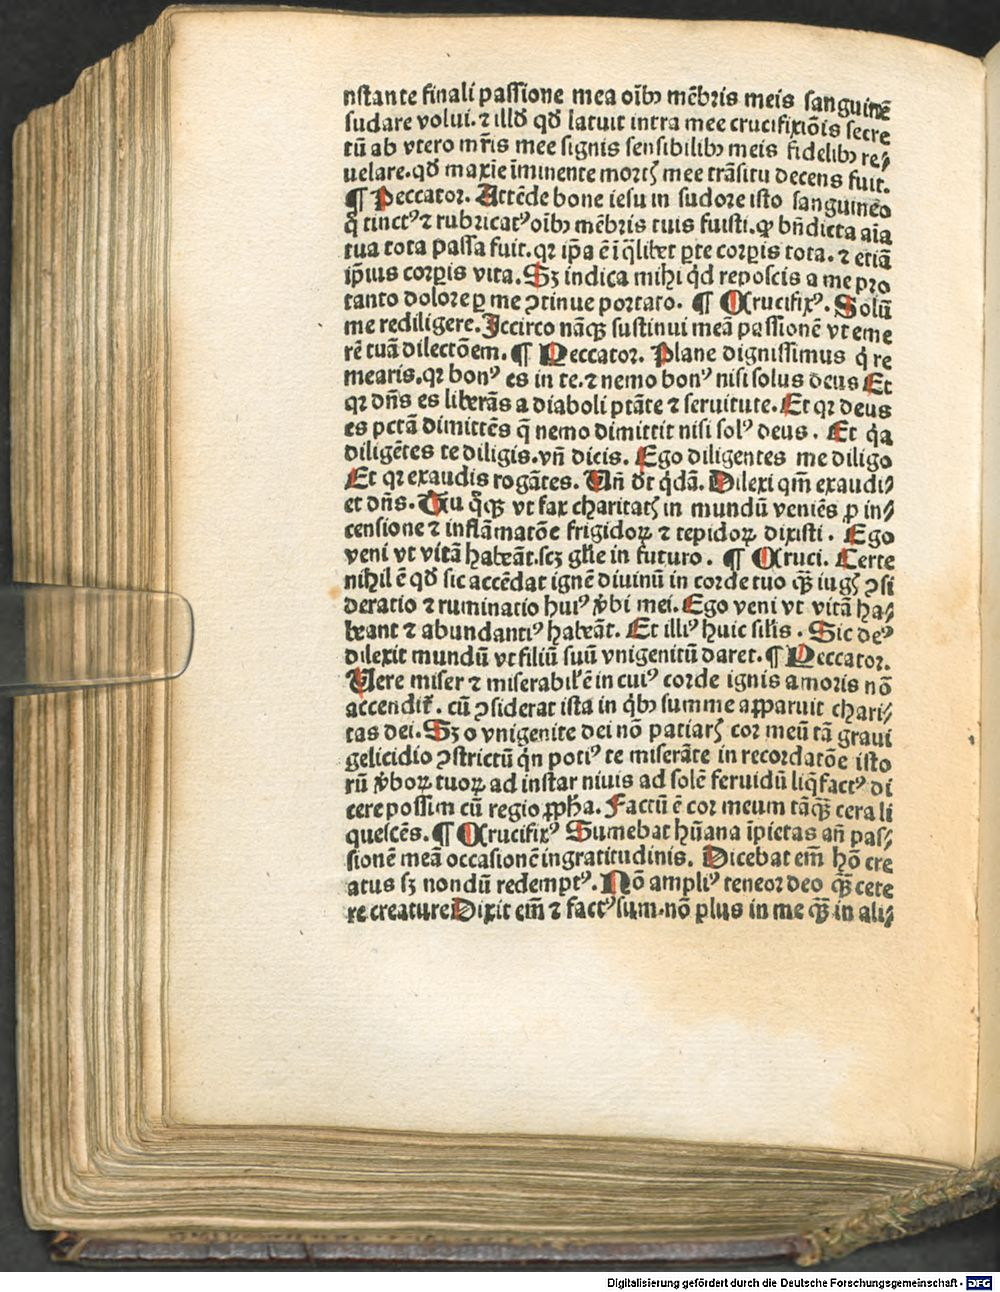 nstante finali passione mea oībꝫ mēbris meis sanguinē
sudare volui. ⁊ illđ qđ latuit intra mee crucifixiōis secre
tū ab vtero mr̄is mee signis sensibilibꝫ meis fidelibꝫ re⸗
uelare. qđ maxīe īminente mortꝭ mee trāsitu decens fuit.
¶ Peccator. Attēde bone iesu in sudore isto sanguineo
q̄ tinctꝰ ⁊ rubricatꝰ oībꝫ mēbris tuis fuisti. ꝙ bn̄dicta aīa
tua tota passa fuit. qꝛ ip̄a ē ī q̄libet ꝑte corꝑis tota. ⁊ etiā
ip̄ius corꝑis vita. Sꝫ indica mihi qđ reposcis a me pro
tanto dolore ꝑ me ꝯtinue portato. ¶ Crucifixꝰ. Solū
me rediligere. Iccirco nāqꝫ sustinui meā passionē vt eme
rē tuā dilectōem. ¶ Peccator. Plane dignissimus q̇ re
mearis. qꝛ bonꝰ es in te. ⁊ nemo bonꝰ nisi solus deus Et
qꝛ dn̄s es liberās a diaboli ptāte ⁊ seruitute. Et qꝛ deus
es pctā dimittēs q̄ nemo dimittit nisi solꝰ deus. Et q̇a
diligētes te diligis. vn̄ dicis. Ego diligentes me diligo
Et qꝛ exaudis rogātes. Vn̄ đt q̇dā. Dilexi qm̄ exaudi⸗
et dn̄s. Tu q̊qꝫ vt fax charitatꝭ in mundū veniēs ꝓ in⸗
censione ⁊ inflāmatōe frigidoꝝ ⁊ tepidoꝝ dixisti. Ego
veni vt vitā habeāt. scꝫ gl̄ie in futuro. ¶ Cruci. Certe
nihil ē qđ sic accēdat ignē diuinū in corde tuo qꝫ̄ iugꝭ ꝯsi
deratio ⁊ ruminatio huiꝰ v̄bi mei. Ego veni vt vitā ha⸗
beant ⁊ abundantiꝰ habeāt. Et illiꝰ huic sil̄is. Sic deꝰ
dilexit mundū vt filiū suū vnigenitū daret. ¶ Peccator.
Vere miser ⁊ miserabil̄ ē in cuiꝰ corde ignis amoris nō
accendit̄. cū ꝯsiderat ista in q̇bꝫ summe apparuit chari⸗
tas dei. Sꝫ o vnigenite dei nō patiarꝭ cor meū tā graui
gelicidio ꝯstrictū q̇n potiꝰ te miserāte in recordatōe isto
rū v̄boꝝ tuoꝝ ad instar niuis ad solē feruidū liq̄factꝰ di
cere possim cū regio ꝓph̄a. Factū ē cor meum tāqꝫ̄ cera li
quescēs. ¶ Crucifixꝰ Sumebat hūana īpietas an̄ pas⸗
sionē meā occasionē ingratitudinis. Dicebat em̄ hō cre
atus sꝫ nondū redemptꝰ. Nō ampliꝰ teneor deo qꝫ̄ cete
re creature Dixit em̄ ⁊ factꝰ sum. nō plus in me qꝫ̄ in ali⸗
Digitalisierung gefördert durch die Deutsche Forschungsgemeinschaft - DFG